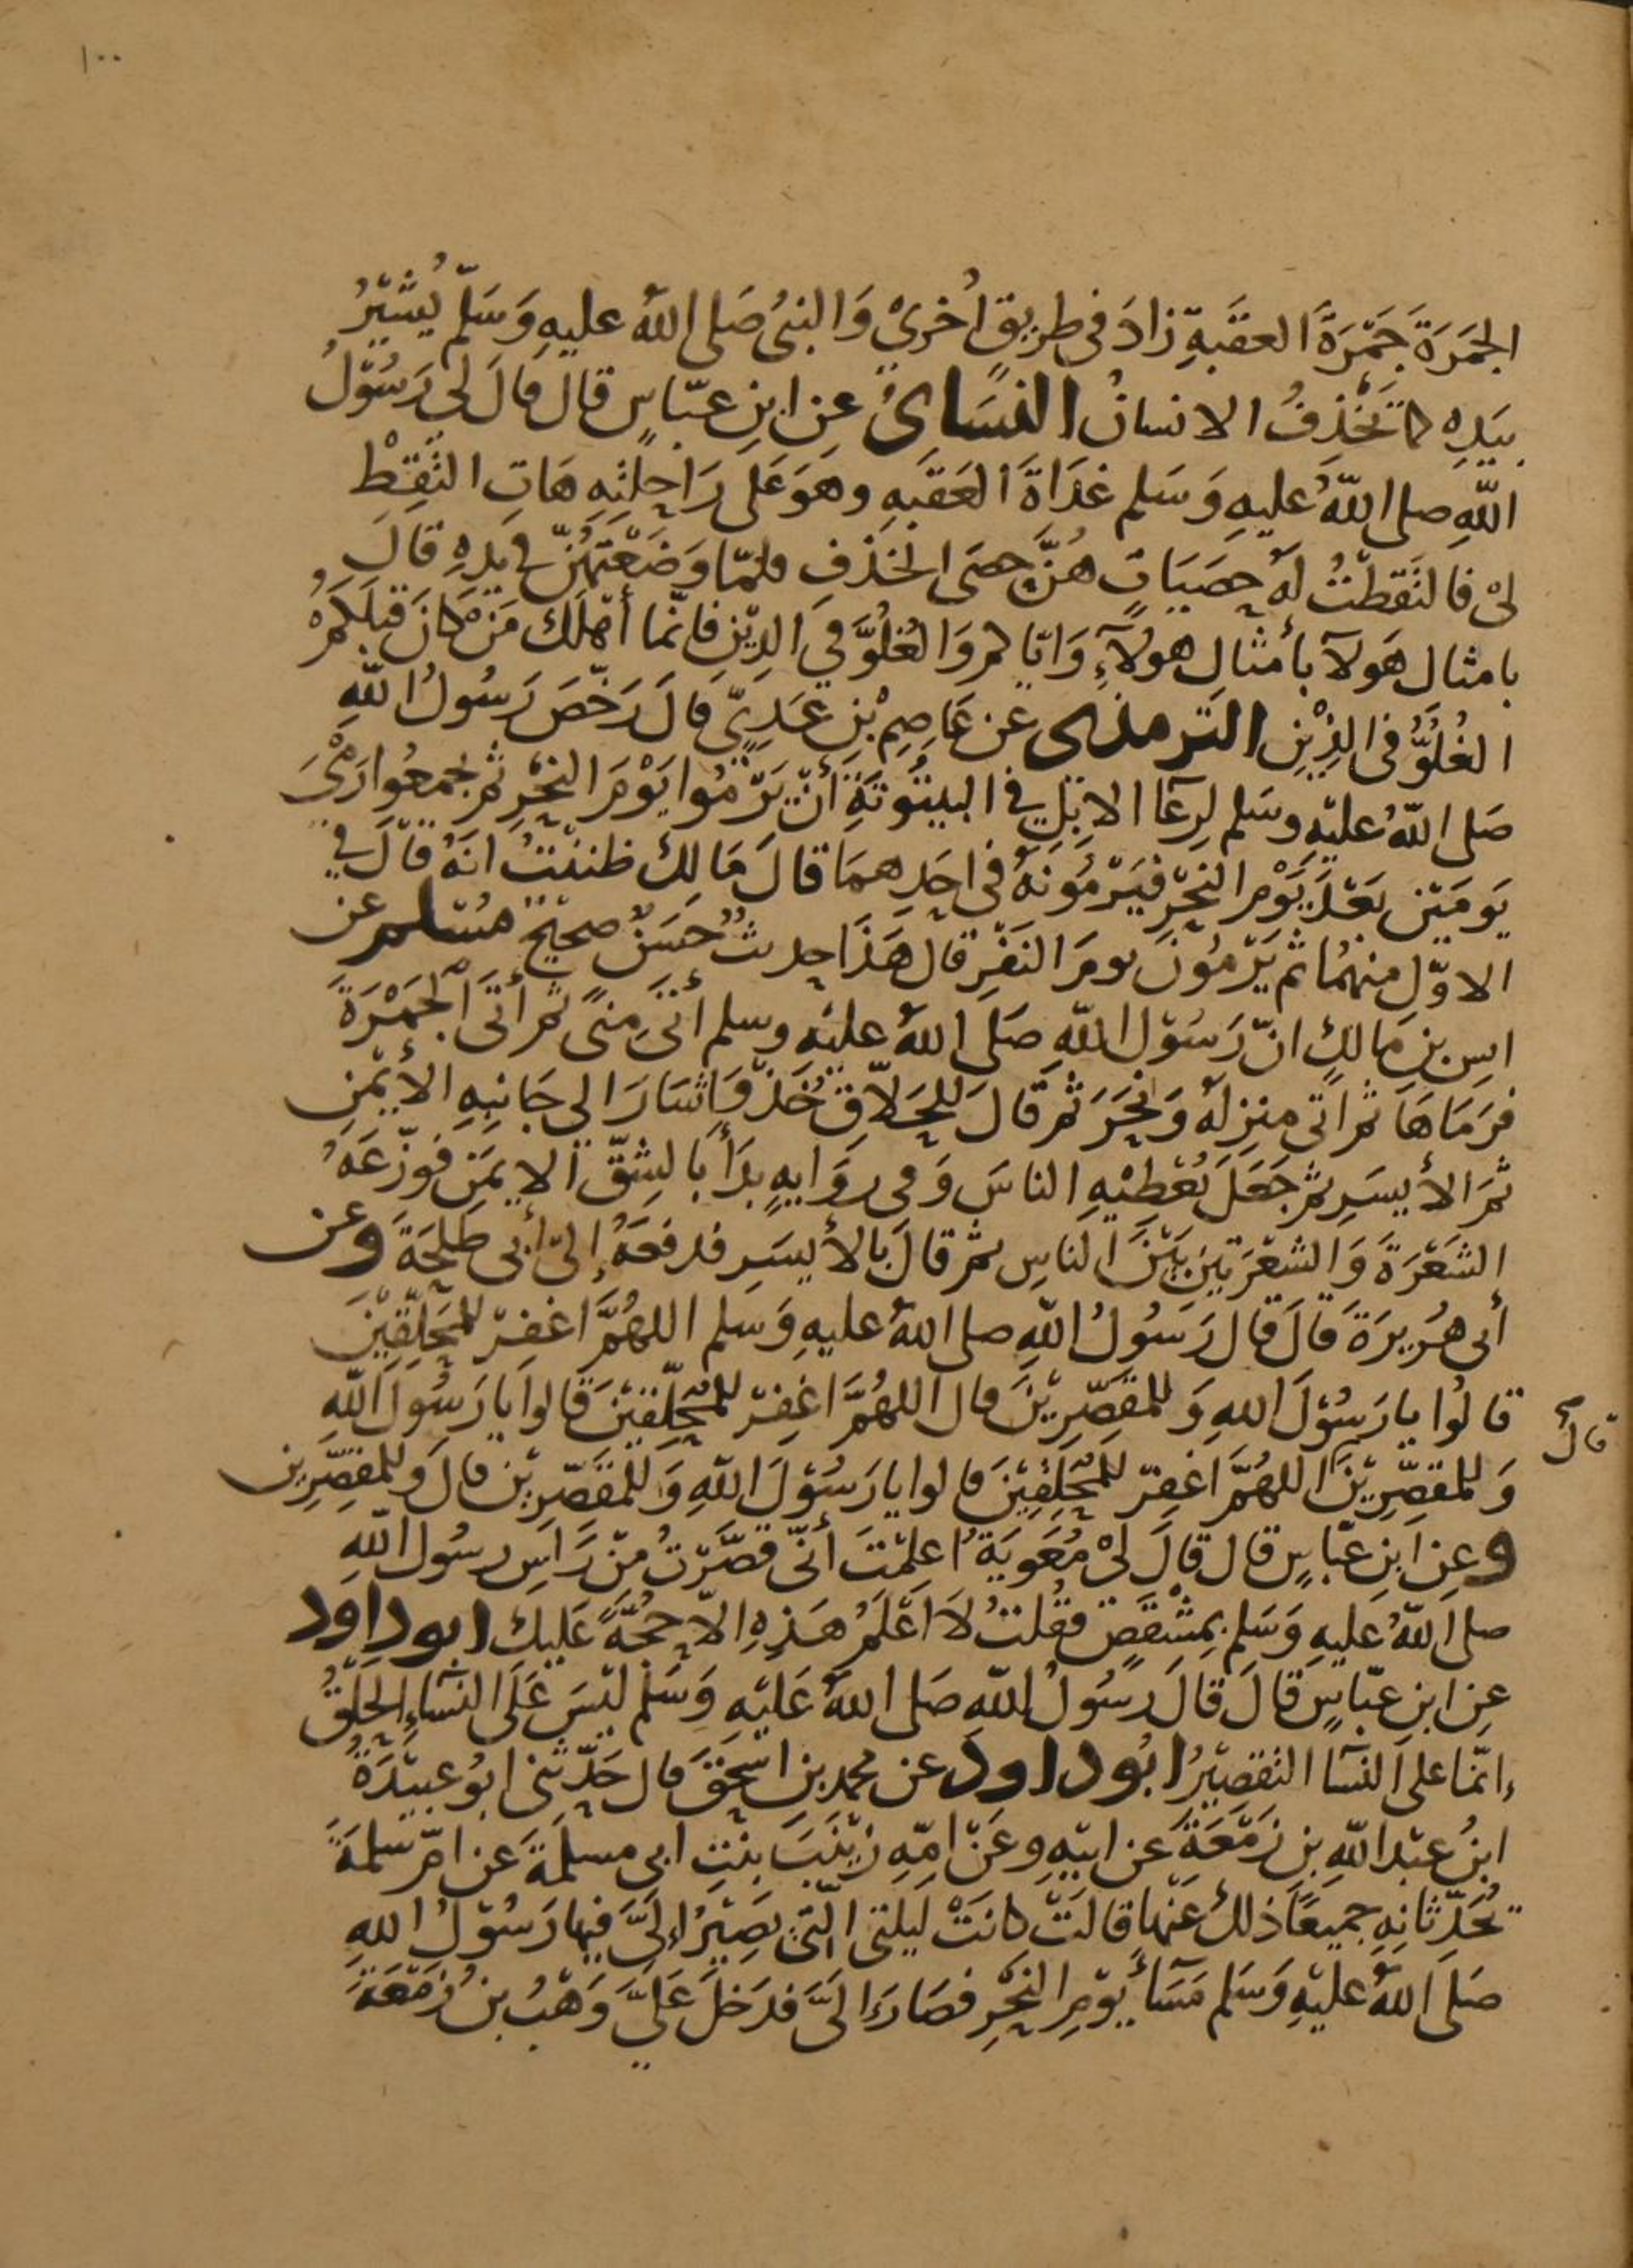 ١٠٠
الجَمرَةَ جَمْرَةَ العقَبةِ زادَ في طريقٍ أُخرىٰ وَالنبىُ صَلى اللهُ عليهِ وَسَلّم يُشيْرُ
بيَدِهِ كما تَخْذِفُ الانسانُ النسَاىُ عنِ ابنِ عبّاسٍ قال قالَ لى رَسُوْلُ
اللّهِ صلى اللّهُ عليهِ وَسَلم غدَاةَ العَقبَهِ وهوَ عَلى رَاحِلتِهِ هَاتِ التقِطْ
لىْ فالتَقطْتُ لهُ حصَيَاتٍ هُنَّ حصَى الخَذْفِ فلمّا وَضَعْتُهُنّ في يَدِهِ قالَ
بامثال هَولآ بأمثالِ هولآءِ وَايّاكم وَالغُلُوَّ فى الدِيْنِ فانّما أهْلَك مَنْ كانَ قبلكمْ
الغُلُوُّ فى الدِّيْنِ الترمذى عن عَاصِمْ بْنِ عَدِىٍّ قالَ رَخّصَ رَسُولُ اللّهِ
صَلى اللّهُ عليْهِ وسَلم لِرِعَآ الابِلِ في البيتُوتَةِ أنْ يَرْمُوا يَوْمَ النحْرِ ثم يجمعُوا رَمْىَ
يَومَيْنِ بعْدَ يَوْم النحْرِ فيَرْمُونَهُ في احَدِهمَا قالَ مَالِك ظننْتُ انهُ قالَ في
الاوّلِ منهُمَا ثم يَرْمُونَ يومَ النَفْرِ قال هَذَا حديثٌ حَسَنٌ صحيْحٌ مُسْلم عن
انسِ بنِ مَالكٍ انّ رَسُوْل اللّهِ صَلى اللهُ عليْهِ وسلم أتىَ مِنىً ثم أتَى الجَمْرَةَ
فرَمَاهَا ثم اتى منزِلهُ وَنحَرَ ثم قالَ للحَلاّقِ خُذْ وَاشَارَ الى جَانبِهِ الأيْمَنِ
ثمَ الأيسَرِ ثم جَعَلَ يُعْطيْهِ الناسَ وَفى روَايهٍ بدَأ بالشِقّ الايمَنِ فوزّعَهُ
الشَعْرَةَ وَالشعْرَتيْنِ بَيْنَ الناسِ ثم قالَ بالأيسَرِ فدفعَهُ إلى أبى طلحَةَ وعن
أبى هُرَيرَةَ قالَ قال رَسُولُ اللّهِ صلى اللهُ عليهِ وَسَلم اللهُمَّ اغفِرْ للمُحَلِّقيْنَ
قالُوا يا رَسُوْلَ اللهِ وَللمُقصِّرِيْنَ قال اللهُمَّ اغفِرْ للمُحَلّقينَ قالوا يا رَسُولَ اللّهِ
قال
وَللمقصِّرِيْنَ اللهُمَّ اغفِرْ للمُحَلّقِيْنَ قالوا يا رَسُوْلَ اللّهِ وَللمُقصّرِيْنَ قالَ وَللمقصِّرِين
وعنِ ابنِ عبّاسٍ قال قالَ لىْ مُعَويَةُ اعلمْتَ أنى قصّرْتُ مِنْ رَاسِ رسُول اللّهِ
صلى اللّهُ عليهِ وَسَلم بمِشْقَصٍ فقُلتُ لاَ اَعْلَمُ هَذِهِ الاّ حُجّةً عَليْكَ ابوداود
عنِ ابنِ عبّاسٍ قالَ قالَ رسُولُ اللّهِ صَلى اللهُ عَليْهِ وَسَلم ليْسَ عَلَى النسَآءِ الحَلْقُ
انمّا على النسَآ التقصيْرُ ابُوداود عن محمد بنِ اسْحقَ قال حَدّثنى ابوُ عبيْدَةُ
ابنُ عبْدِ اللّهِ بنِ زَمْعَةَ عن ابيْهِ وعَنْ امّهِ زيْنَبَ بنْتِ ابى مسلمةَ عن امّ سلمةَ
تُحَدّثانِهِ جميعًا ذلكَ عَنْها قالَتْ كانَتْ ليلتى التى يصِيْرُ إلىَّ فيْها رَسُوْلُ اللّهِ
صَلَى اللّهُ عليْهِ وَسَلم مَسَآ يوْمِ النحْرِ فصَارَ الَىَّ فدَخلَ عَلىَّ وَهْبُ بنُ زَمْعَةَ